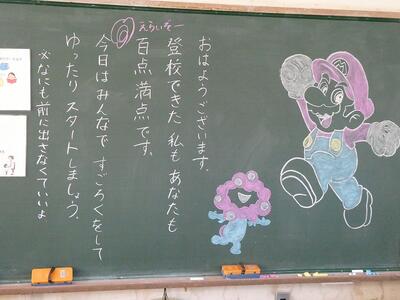 おはようございます。
登校できた 私も あなたも
百点満点です。
えらいぞー
今日はみんなで すごろくをして
ゆったり スタートしましょう。
※なにも前に出さなくていいよ